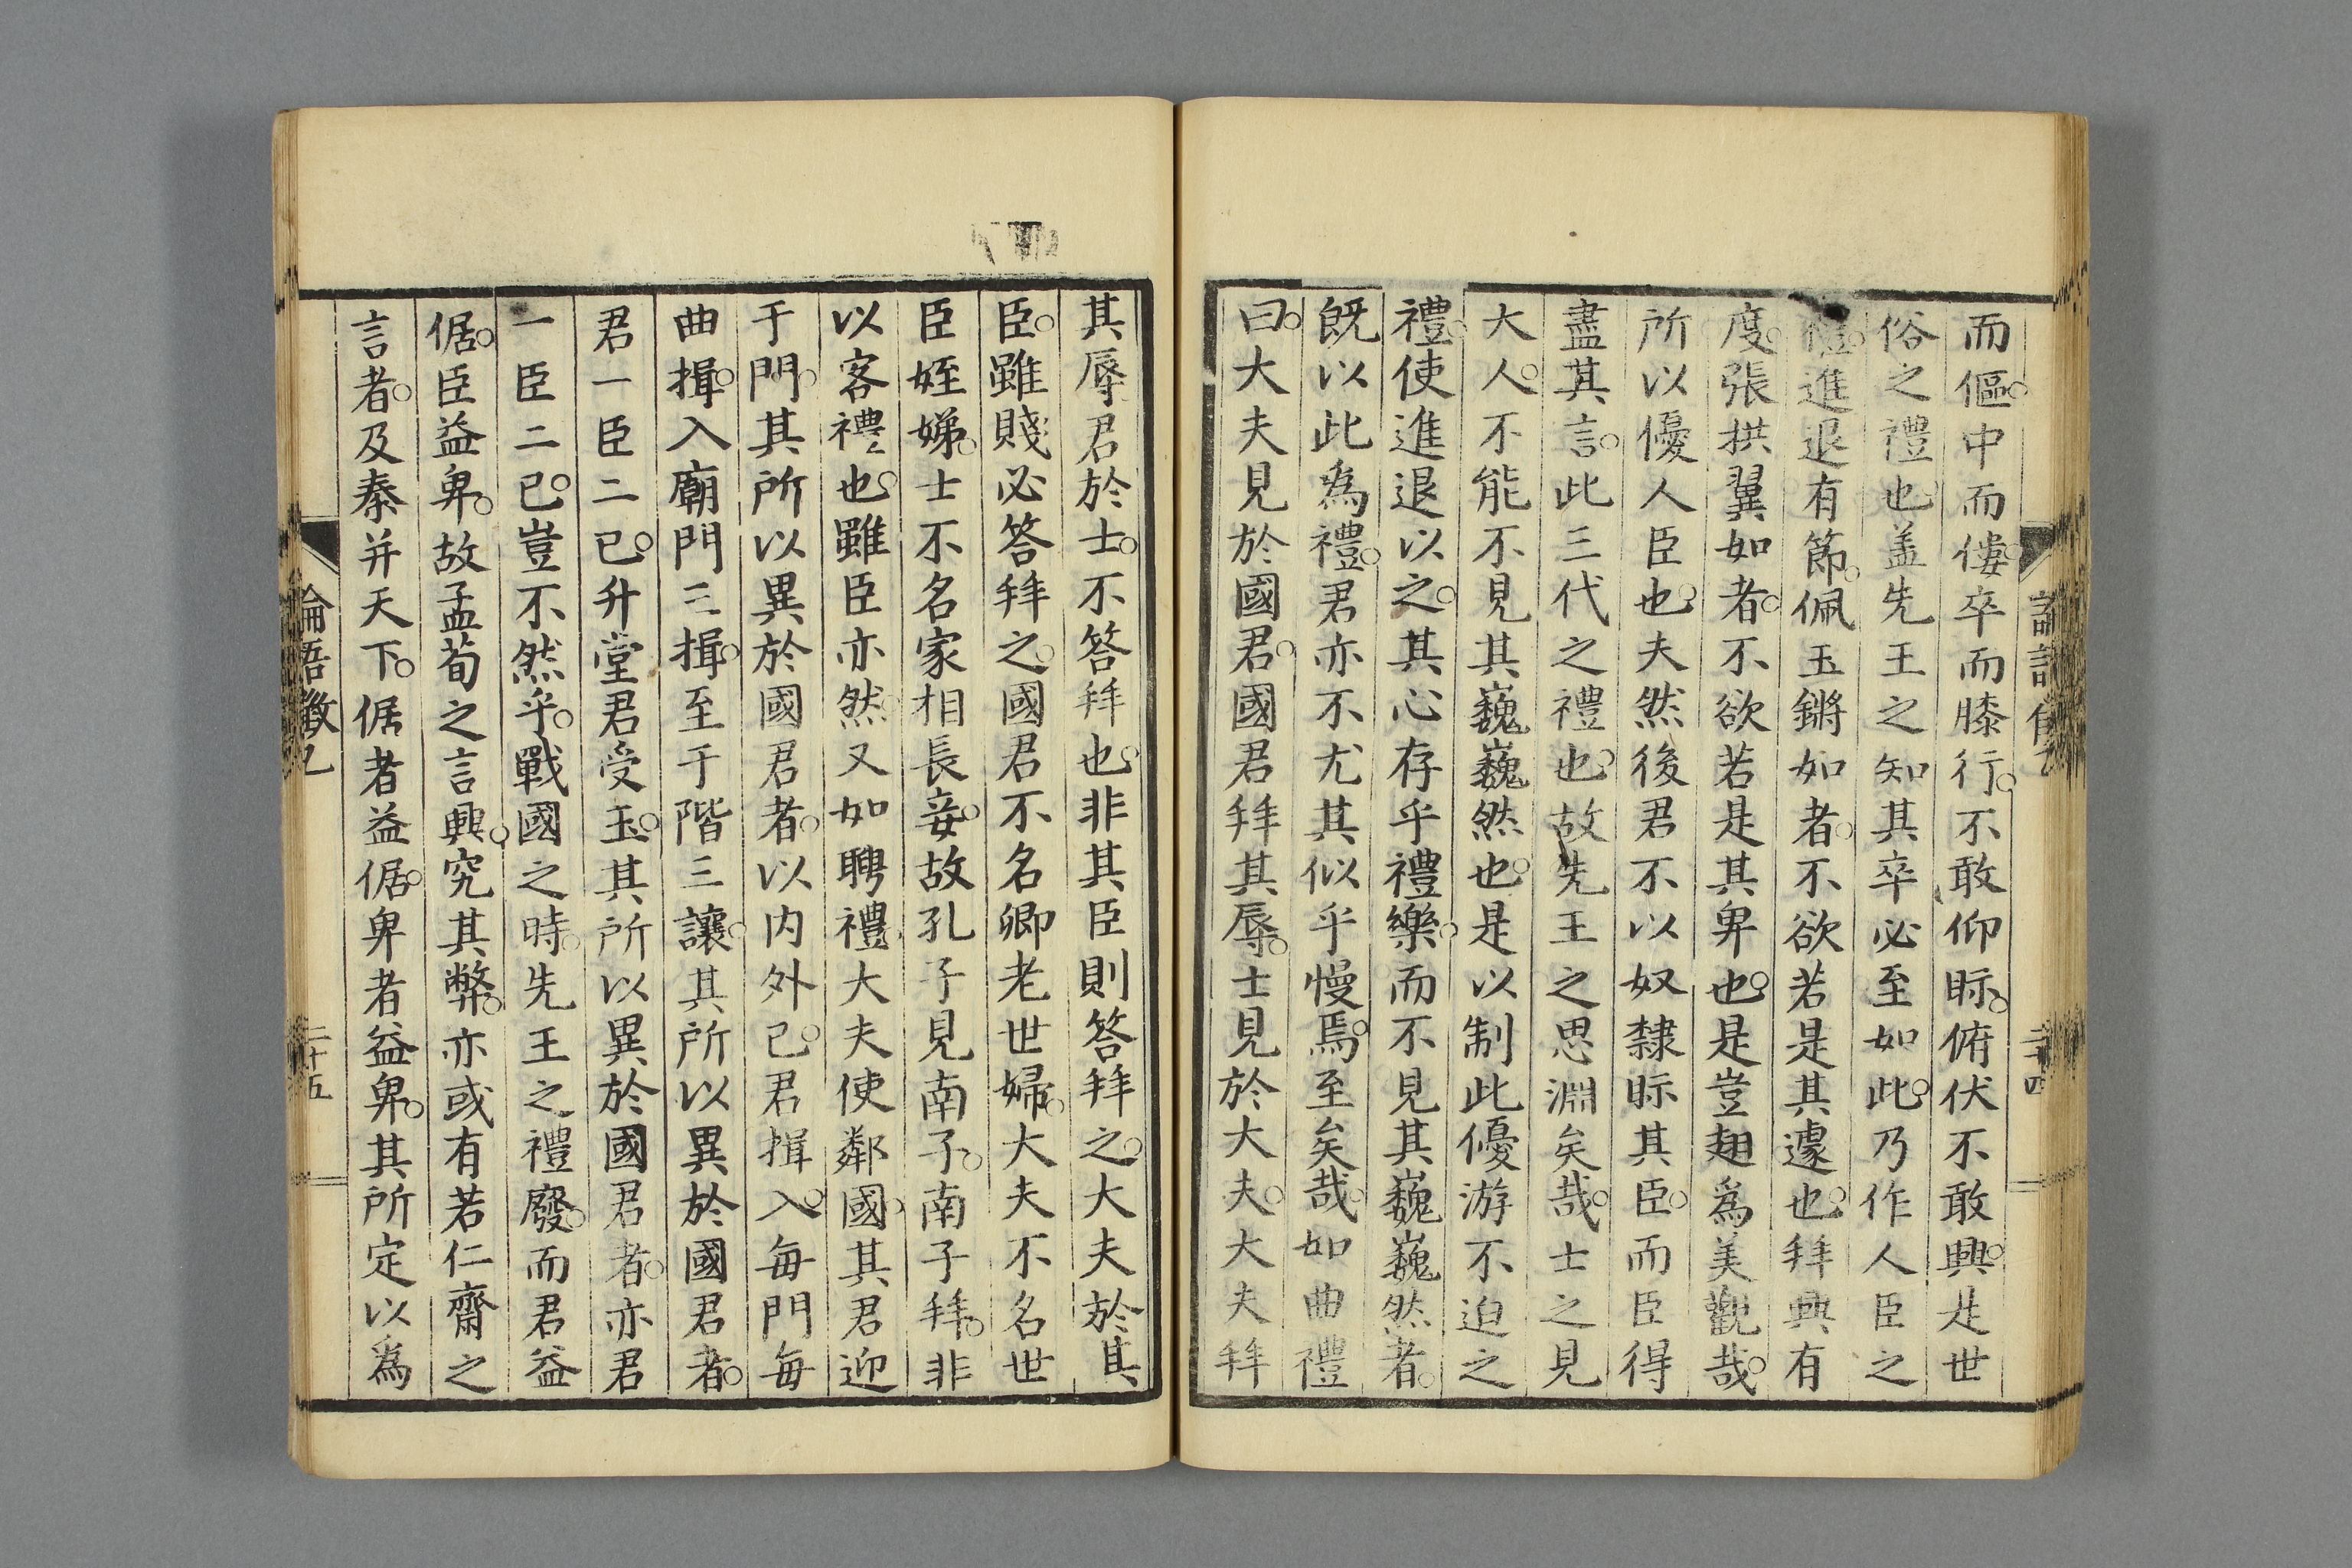 而傴中而僂卒而膝行不敢仰眎俯伏不敢興是世
俗之禮也盖先王之知其卒必至如此乃作人臣之
禮進退有節佩玉鏘如者不欲若是其遽也拜興有
度張拱翼如者不欲若是其卑也是豈翅爲美觀哉
所以優人臣也夫然後君不以奴隸眎其臣而臣得
盡其言此三代之禮也故先王之思淵矣哉士之見
大人不能不見其巍巍然也是以制此優游不迫之
禮使進退以之其心存乎禮樂而不見其巍巍然者
既以此爲禮君亦不尤其似乎慢焉至矣哉如曲禮
曰大夫見於國君國君拜其辱士見於大夫大夫拜
二十四
其辱君於士不答拜也非其臣則答拜之大夫於其
臣雖賤必答拜之國君不名卿老世婦大夫不名世
臣姪娣士不名家相長妾故孔子見南子南子拜非
以客禮乎也雖臣亦然又如聘禮大夫使鄰國其君迎
于門其所以異於國君者以内外已君揖入每門每
曲揖入廟門三揖至于階三讓其所以異於國君者
君一臣二已升堂君受玉其所以異於國君者亦君
一臣二已豈不然乎戰國之時先王之禮廢而君益
倨臣益卑故孟荀之言興究其弊亦或有若仁齋之
言者及秦并天下倨者益倨卑者益卑其所定以爲
論語徵乙
二十五